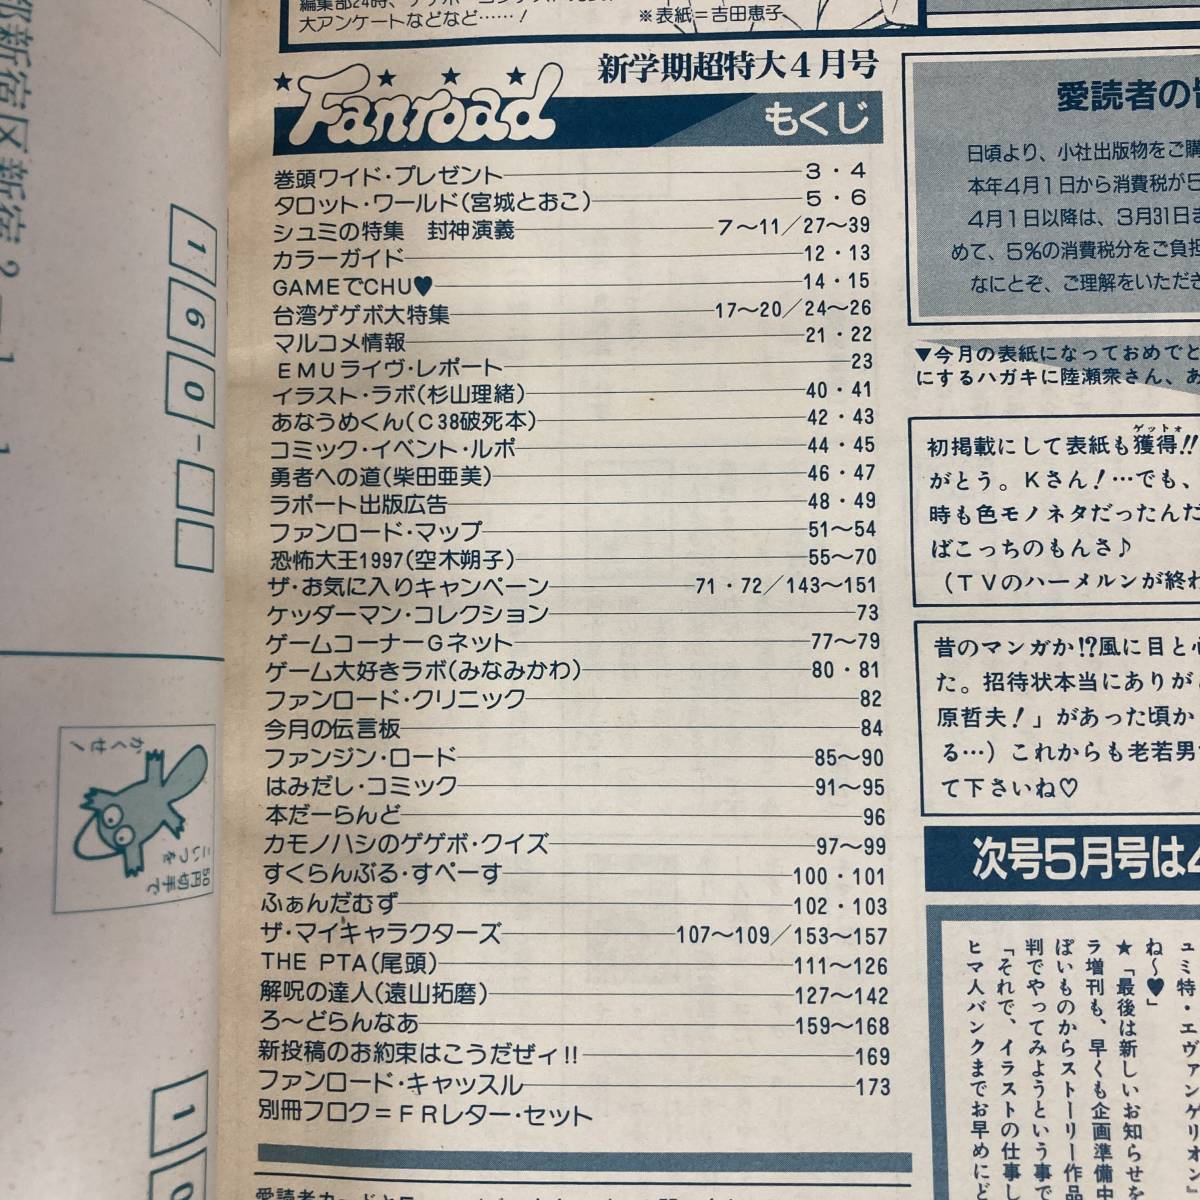 大アンケートなどなど……！
※表紙＝吉田恵子
新学期超特大4月号
Fanroad
もくじ
巻頭ワイド・プレゼント 3・4
タロット・ワールド(宮城とおこ) 5・6
シュミの特集 封神演義 7〜11／27〜39
カラーガイド 12・13
GAMEでCHU♥ 14・15
台湾ゲゲボ大特集 17〜20／24〜26
マルコメ情報 21・22
EMUライヴ・レポート 23
イラスト・ラボ(杉山理緒) 40・41
あなうめくん(C38破死本) 42・43
コミック・イベント・ルポ 44・45
勇者への道(柴田亜美) 46・47
ラポート出版広告 48・49
ファンロード・マップ 51〜54
恐怖大王1997(空木朔子) 55〜70
ザ・お気に入りキャンペーン 71・72／143〜151
ケッダーマン・コレクション 73
ゲームコーナーGネット 77〜79
ゲーム大好きラボ(みなみかわ) 80・81
ファンロード・クリニック 82
今月の伝言板 84
ファンジン・ロード 85〜90
はみだし・コミック 91〜95
本だーらんど 96
カモノハシのゲゲボ・クイズ 97〜99
すくらんぶる・すぺーす 100・101
ふぁんだむず 102・103
ザ・マイキャラクターズ 107〜109／153〜157
THE PTA(尾頭) 111〜126
解呪の達人(遠山拓磨) 127〜142
ろ〜どらんなあ 159〜168
新投稿のお約束はこうだぜィ!! 169
ファンロード・キャッスル 173
別冊フロク＝FRレター・セット
愛読者の
日頃より、小社出版物をご購
本年4月1日から消費税が5
4月1日以降は、3月31日ま
めて、5％の消費税分をご負担
なにとぞ、ご理解をいただき
▼今月の表紙になっておめでと
にするハガキに陸瀬衆さん、あ
ゲットォ
初掲載にして表紙も獲得!!
がとう。Kさん！…でも、
時も色モノネタだったんだ
ばこっちのもんさ♪
（TVのハーメルンが終わ
昔のマンガか!?風に目と心
た。招待状本当にありが
原哲夫！」があった頃か
る…）これからも老若男
て下さいね♡
次号5月号は4
ュミ特・エヴァンゲリオン」
ね〜♥」
★「最後は新しいお知らせを
ラ増刊も、早くも企画準備中
ぽいものからストーリー作品
判でやってみようという事で
「それで、イラストの仕事し
ヒマ人バンクまでお早めにど
新宿区新宿2
160-
かくせ！
50円切手で
こいつを
10